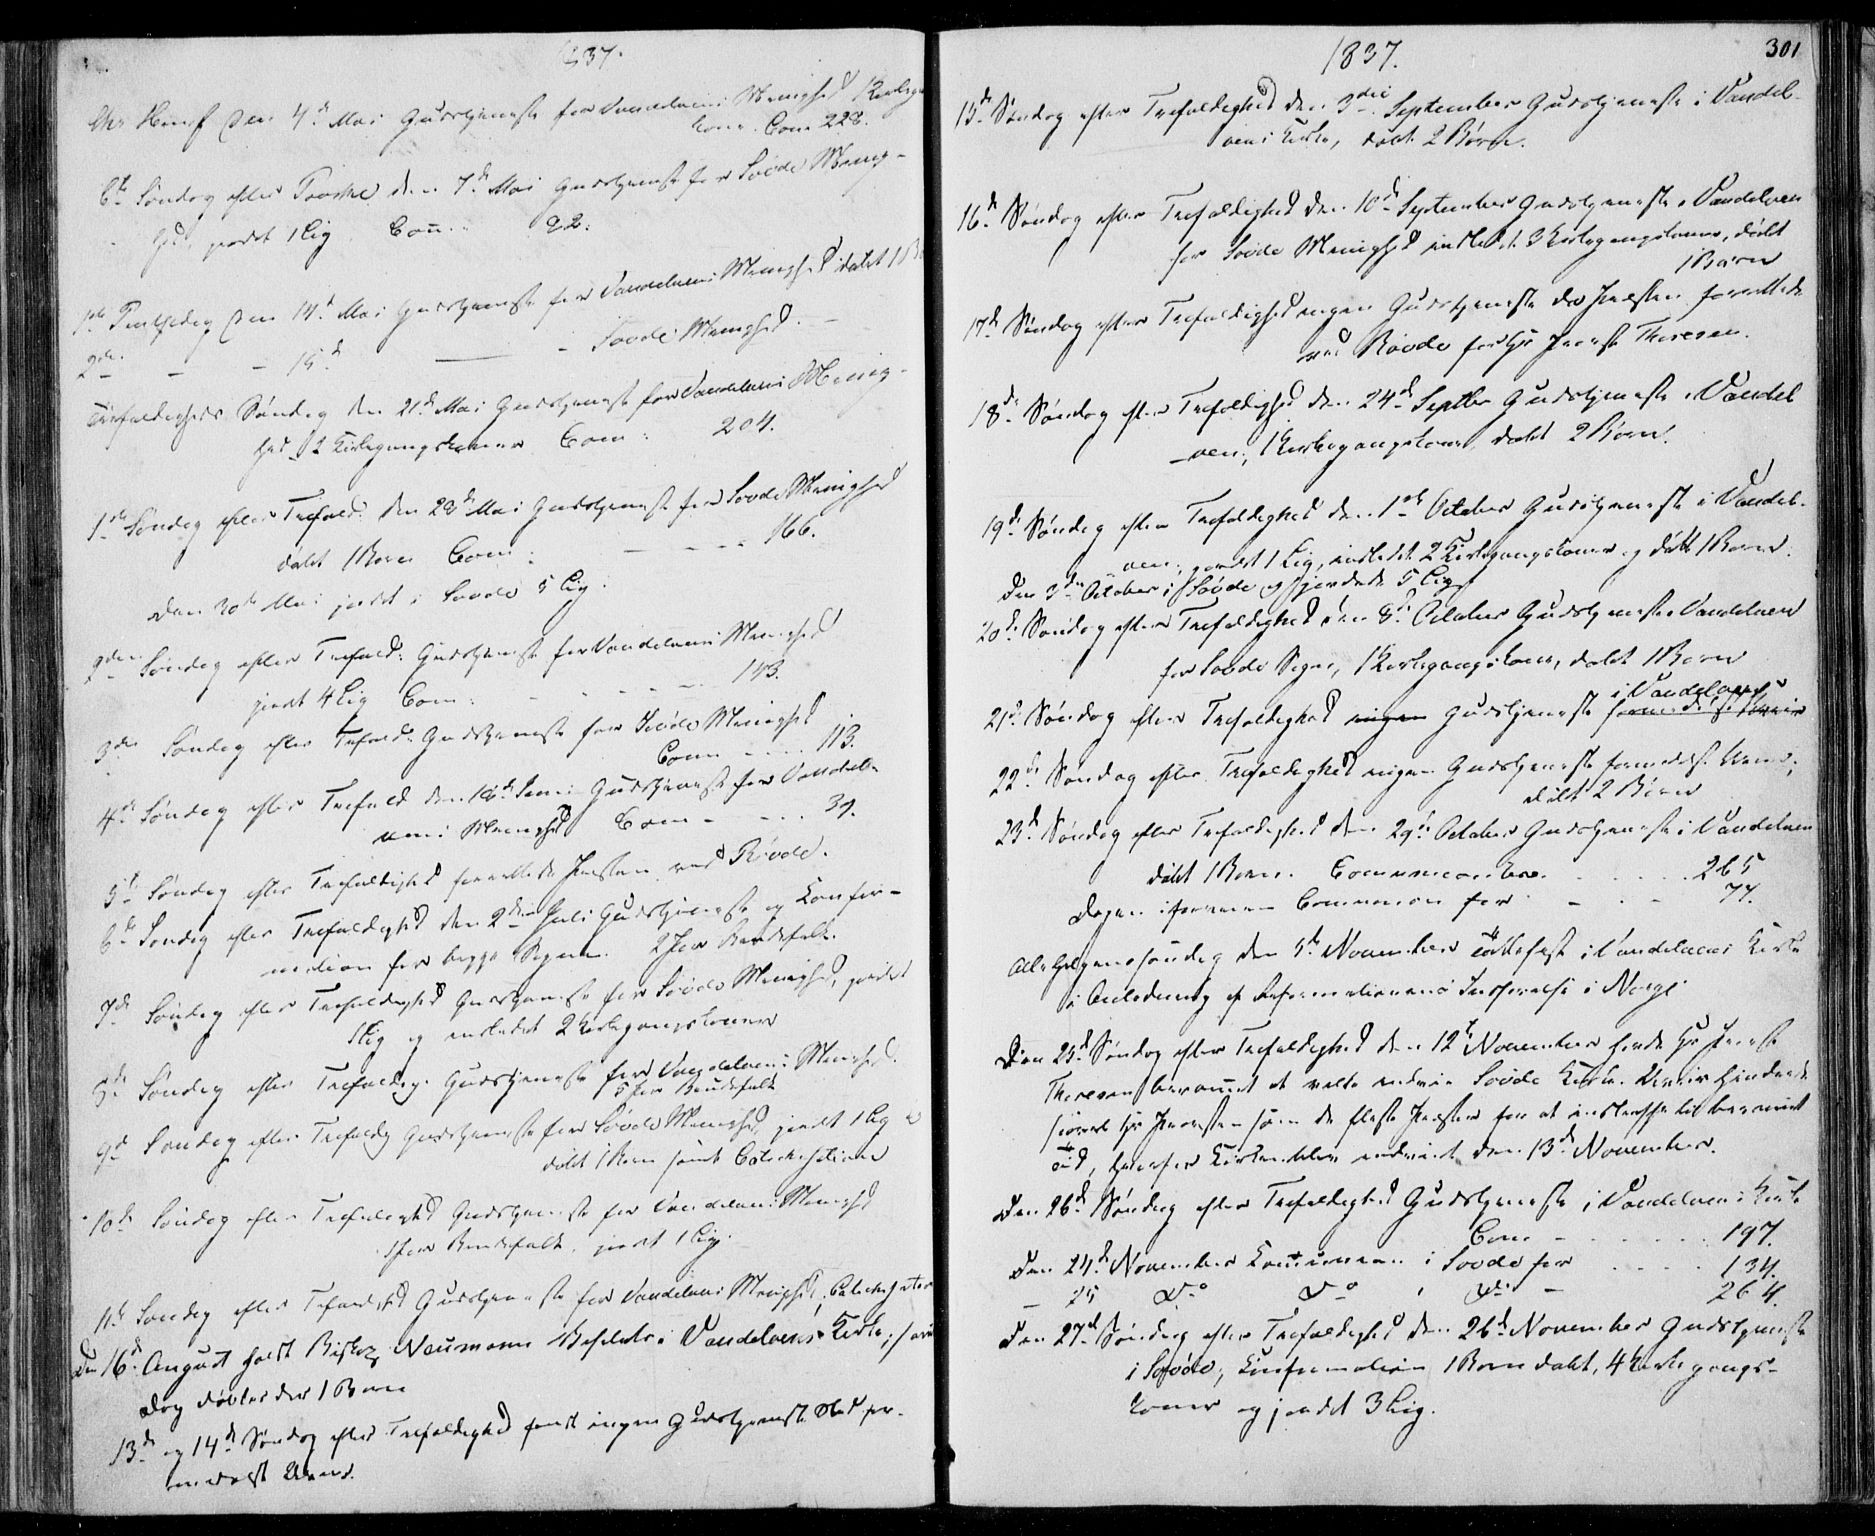 1837.
Chr. Himf. den 4de Mai Gudstjeneste for Vandelvens Menighed 1 Kirkeg-
kone. Com. 228.
6te Søndag efter Paaske den 7de Mai Gudstjeneste for Søvde Menig-
hed, jordet 1 Lig. Com. 92.
1ste Pintsedag den 14de Mai Gudstjeneste for Vandelvens Menighed døbt 1 B
2den - - 15de - Søvde Menighed. -
Trefoldigheds Søndag den 21de Mai Gudstjeneste for Vandelvens Menig-
hed 2 Kirkegangskoner Com: 204.
1ste Søndag efter Trefold: den 28de Mai Gudstjeneste for Søvde Menighed
døbt 1 Barn Com: - - - - 166.
Den 30te Mai jordet i Søvde 5 Lig.
2den Søndag efter Trefold: Gudstjeneste for Vandelvens Menighed
jordet 4 Lig Com: - - - - 143.
3die Søndag efter Trefold: Gudstjeneste for Søvde Menighed
Com - - - 113.
4de Søndag efter Trefold den 18de Juni Gudstjeneste for Vandel-
vens Menighed Com - - - 34.
5te Søndag efter Trefoldighed forrettede Præsten ved Røvde.
6te Søndag efter Trefoldighed den 2den Juli Gudstjeneste og Confir-
mation for begge Sogne. 2 Par Brudefolk.
7de Søndag efter Trefoldighed Gudstjeneste for Søvde Menighed, jordet
1 Lig og indledet 2 Kirkegangskoner
8de Søndag efter Trefoldigh. Gudstjeneste for Vandelvens Menighed.
5 Par Brudefolk
9de Søndag efter Trefoldigh Gudstjeneste for Søvde Menighed, jordet 1 Lig
døbt 1 Barn samt Catechisation
10de Søndag efter Trefoldighed Gudstjeneste for Vandelvens Menighed
1 Par Brudefolk, jordet 1 Lig.
11te Søndag efter Trefoldighed Gudstjeneste for Vandelvens Menighed, Catechisation
Den 16de August holdt Biskop Neumann Visitats i Vandelvens Kirke, samme
Dag døbtes der 1 Barn
13de og 14de Søndag efter Trefoldighed fandt ingen Gudstjeneste Sted for-
medelst Uveir.
1837.
301
15de Søndag efter Trefoldighed den 3die September Gudstjeneste i Vandel-
vens Kirke, døbt 2 Børn.
16de Søndag efter Trefoldighed den 10de September Gudstjeneste i Vandelven
for Søvde Menighed indledet 3 Kirkegangskoner, døbt
1 Barn
17de Søndag efter Trefoldighed ingen Gudstjeneste da Præsten forrettede
ved Røvde for Hr Provst Thoresen.
18de Søndag efter Trefoldighed den 24de Septbr Gudstjeneste i Vandel
-ven, 1 Kirkegangskone, døbt 2 Børn.
19de Søndag efter Trefoldighed den 1ste October Gudstjeneste i Vandel-
ven, jordet 1 Lig, indledet 2 Kirkegangskoner og døbt 1 Barn.
Den 3die October i Søvde og jordede 5 Lig
20de Søndag efter Trefoldighed den 8de October Gudstjeneste i Vandelven
for Søvde Sogn, 1 Kirkegangskone, døbt 1 Barn
i Vandelven
21de Søndag efter Trefoldighed ingen Gudstjeneste formedelst Uveir
22de Søndag efter Trefoldighed ingen Gudstjeneste formedelst Uveir,
døbt 2 Børn
23de Søndag efter Trefoldighed den 29de October Gudstjeneste i Vandelven
døbt 1 Barn. Communicantere. - - - - 265
Dagen iforveien Communion for - - - 77.
Allehelgenssøndag den 5te November Takkefest i Vandelvens Kirke
i Anledning af Reformationens Indførelse i Norge
Den 25de Søndag efter Trefoldighed den 12te November havde Hr Provst
Thoresen berammet at ville indvie Søvde Kirke. Uveir hindrede
saavel Hr Provsten som de fleste Præster for at indtræffe til berammet
Tid, hvorfor Kirken blev indviet den 13de November.
Den 26de Søndag efter Trefoldighed Gudstjeneste i Vandelvens Kirke
Com - - - - - 197.
Den 24de November Communion i Søvde for - - - - 134.
- 25 Do Do i Do - 264.
Den 27de Søndag efter Trefoldighed den 26de November Gudstjeneste
i Søvde, Confirmation 1 Barn døbt, 4 Kirkegangs-
koner og jordet 3 Lig.